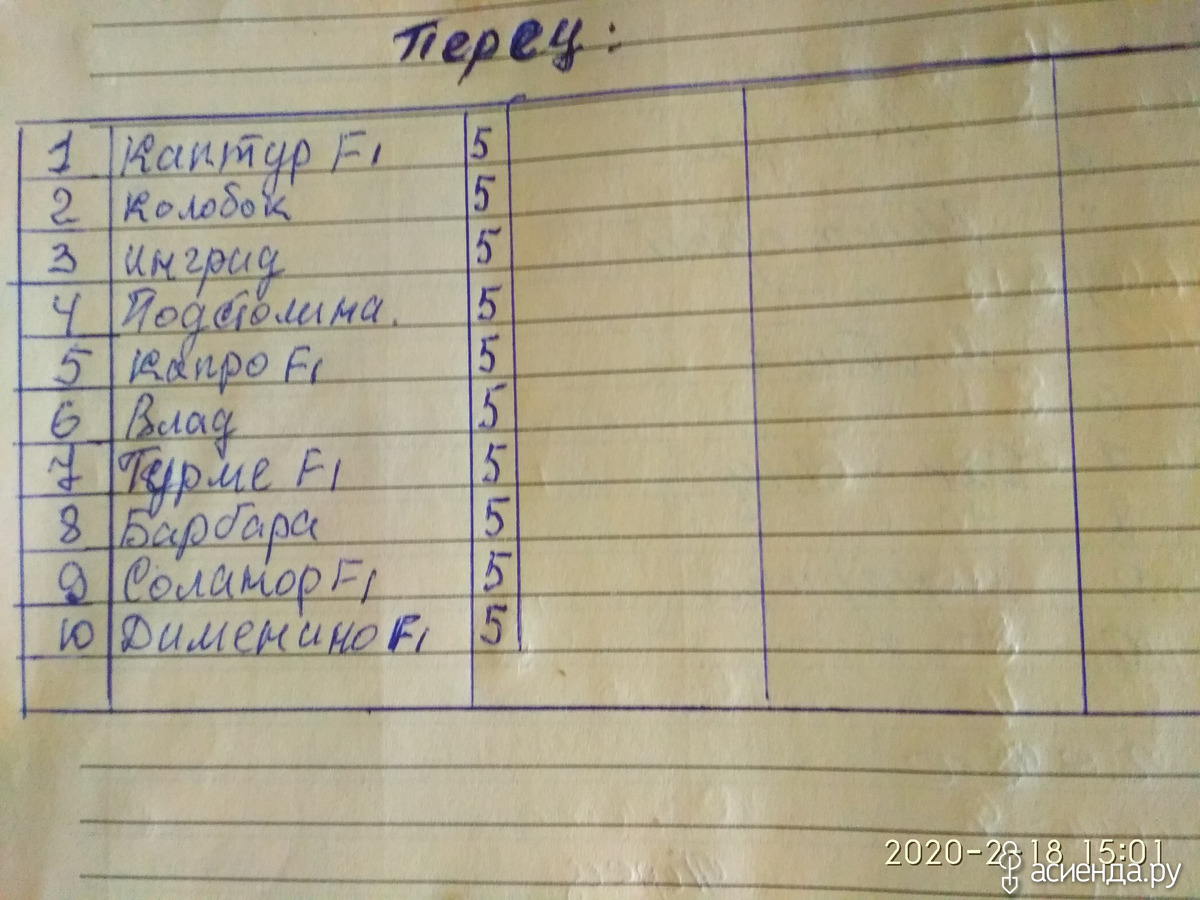 Перец:
1 Каптур F1 5
2 Колобок 5
3 Ингрид 5
4 Подстолина. 5
5 Капро F1 5
6 Влад 5
7 Турме F1 5
8 Барбара 5
9 Соланор F1 5
10 Дименино F1 5
2020-2-18 15:01
асиенда.ру